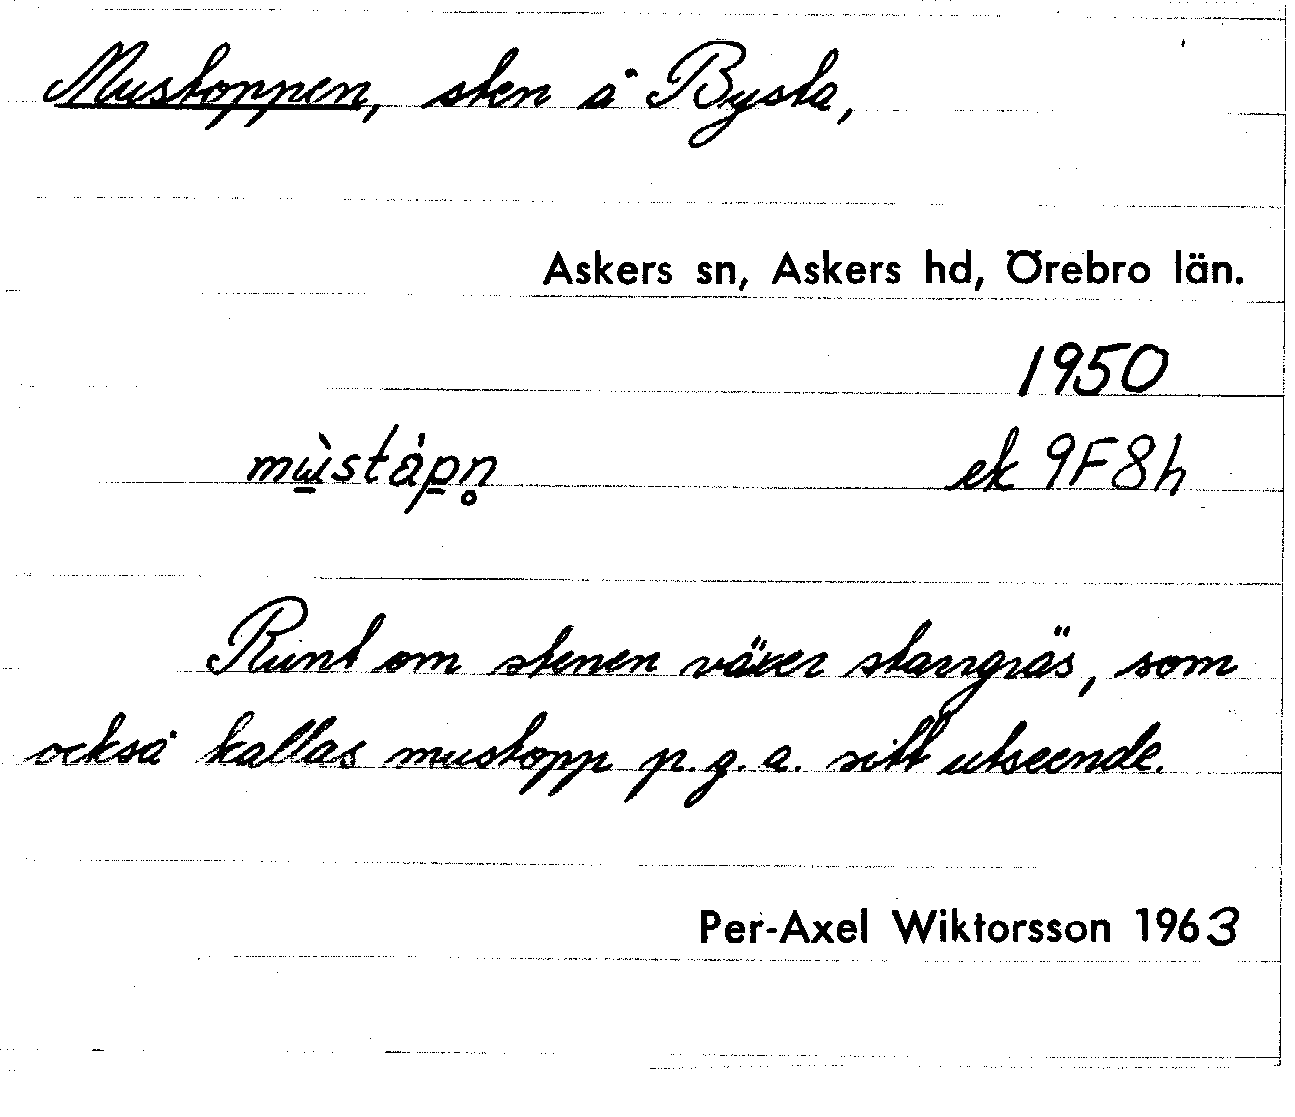 Mustoppen, sten å Bysta,
Askers sn, Askers hd, Örebro län.
1950
mu̠̇̀ståp̠n̥ ek 9F8h
Runt om stenen växer starrgräs, som
också kallas mustopp p.g.a. sitt utseende.
Per-Axel Wiktorsson 1963